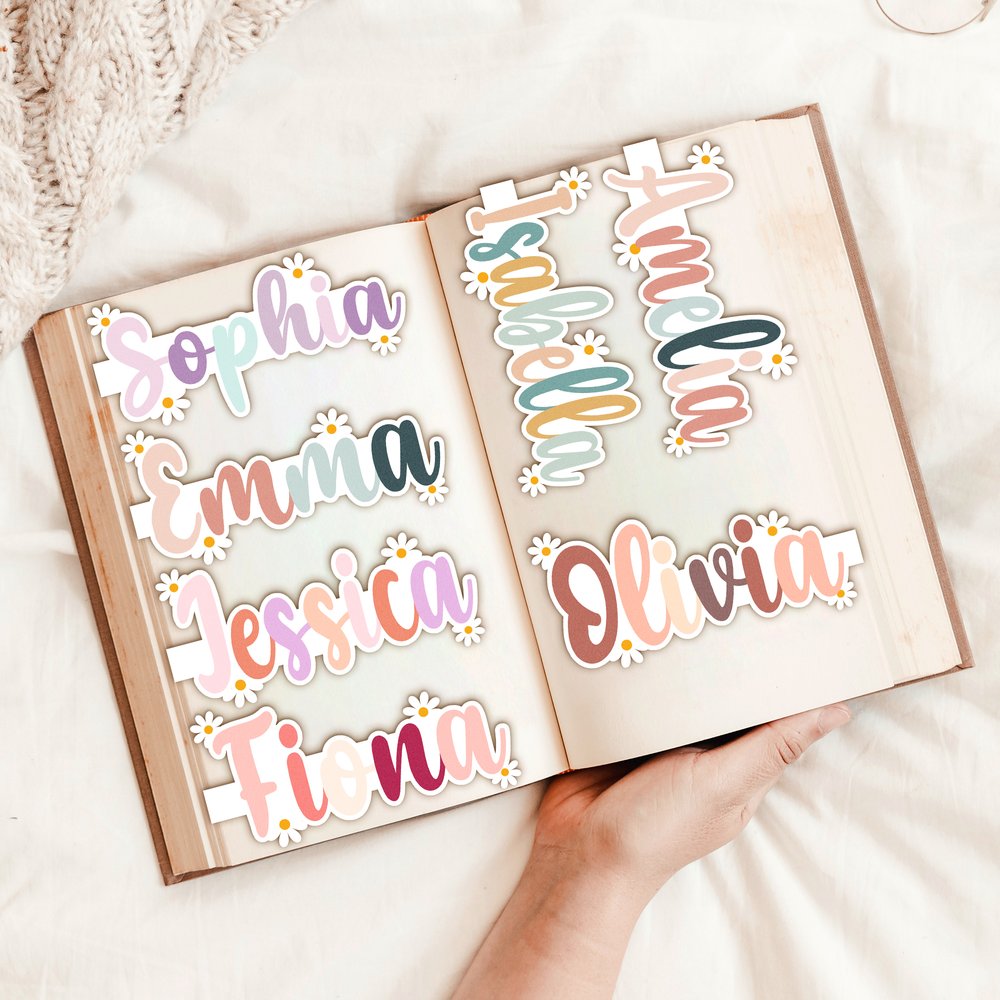 Sophia
Emma
Jessica
Fiona
Isabella
Amelia
Olivia